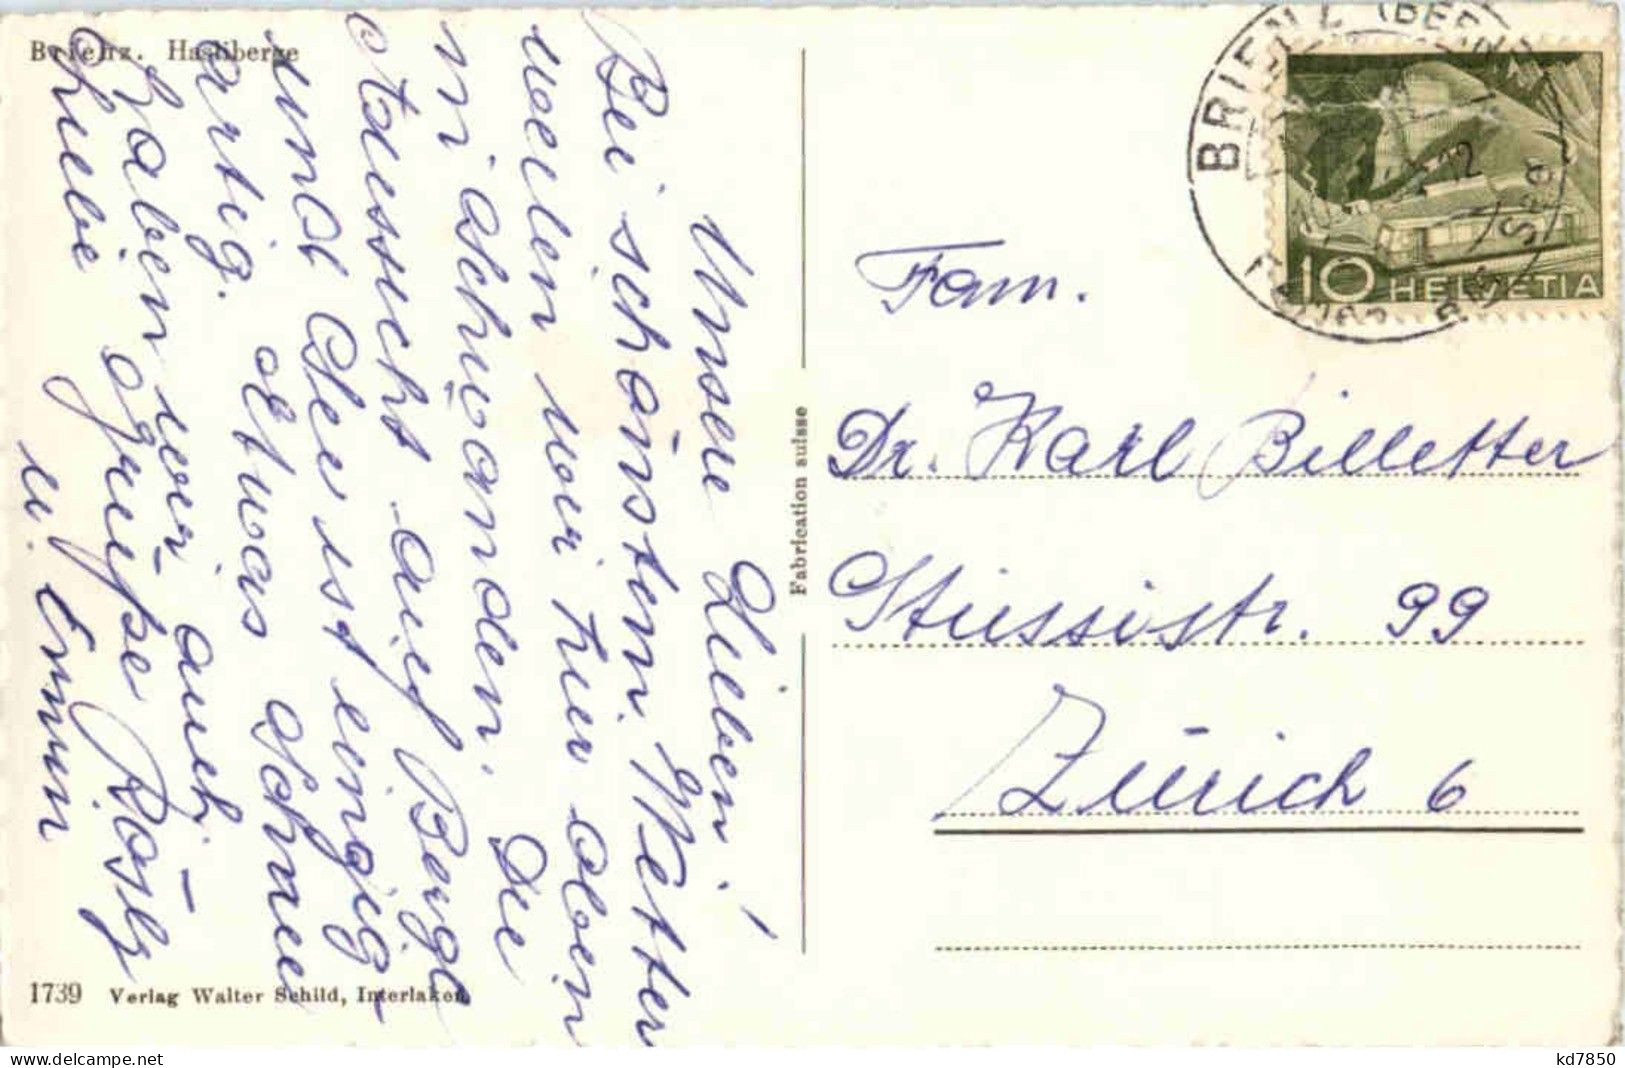 Brienz. Hasliberge
Unsere Lieben!
Bei schönstem Wetter
weilen wir hier oben
in Aschwanden. Die
Aussicht auf Berge
und See ist einzig-
artig. Etwas Schnee
haben wir auch.
Liebe Grüsse Rösly
u. Erwin
1739 Verlag Walter Schild, Interlaken
Fabrication suisse
BRIENZ (BERN)
10 HELVETIA
Fam.
Dr. Karl Billetter
Stüssistr. 99
Zürich 6
kd7850